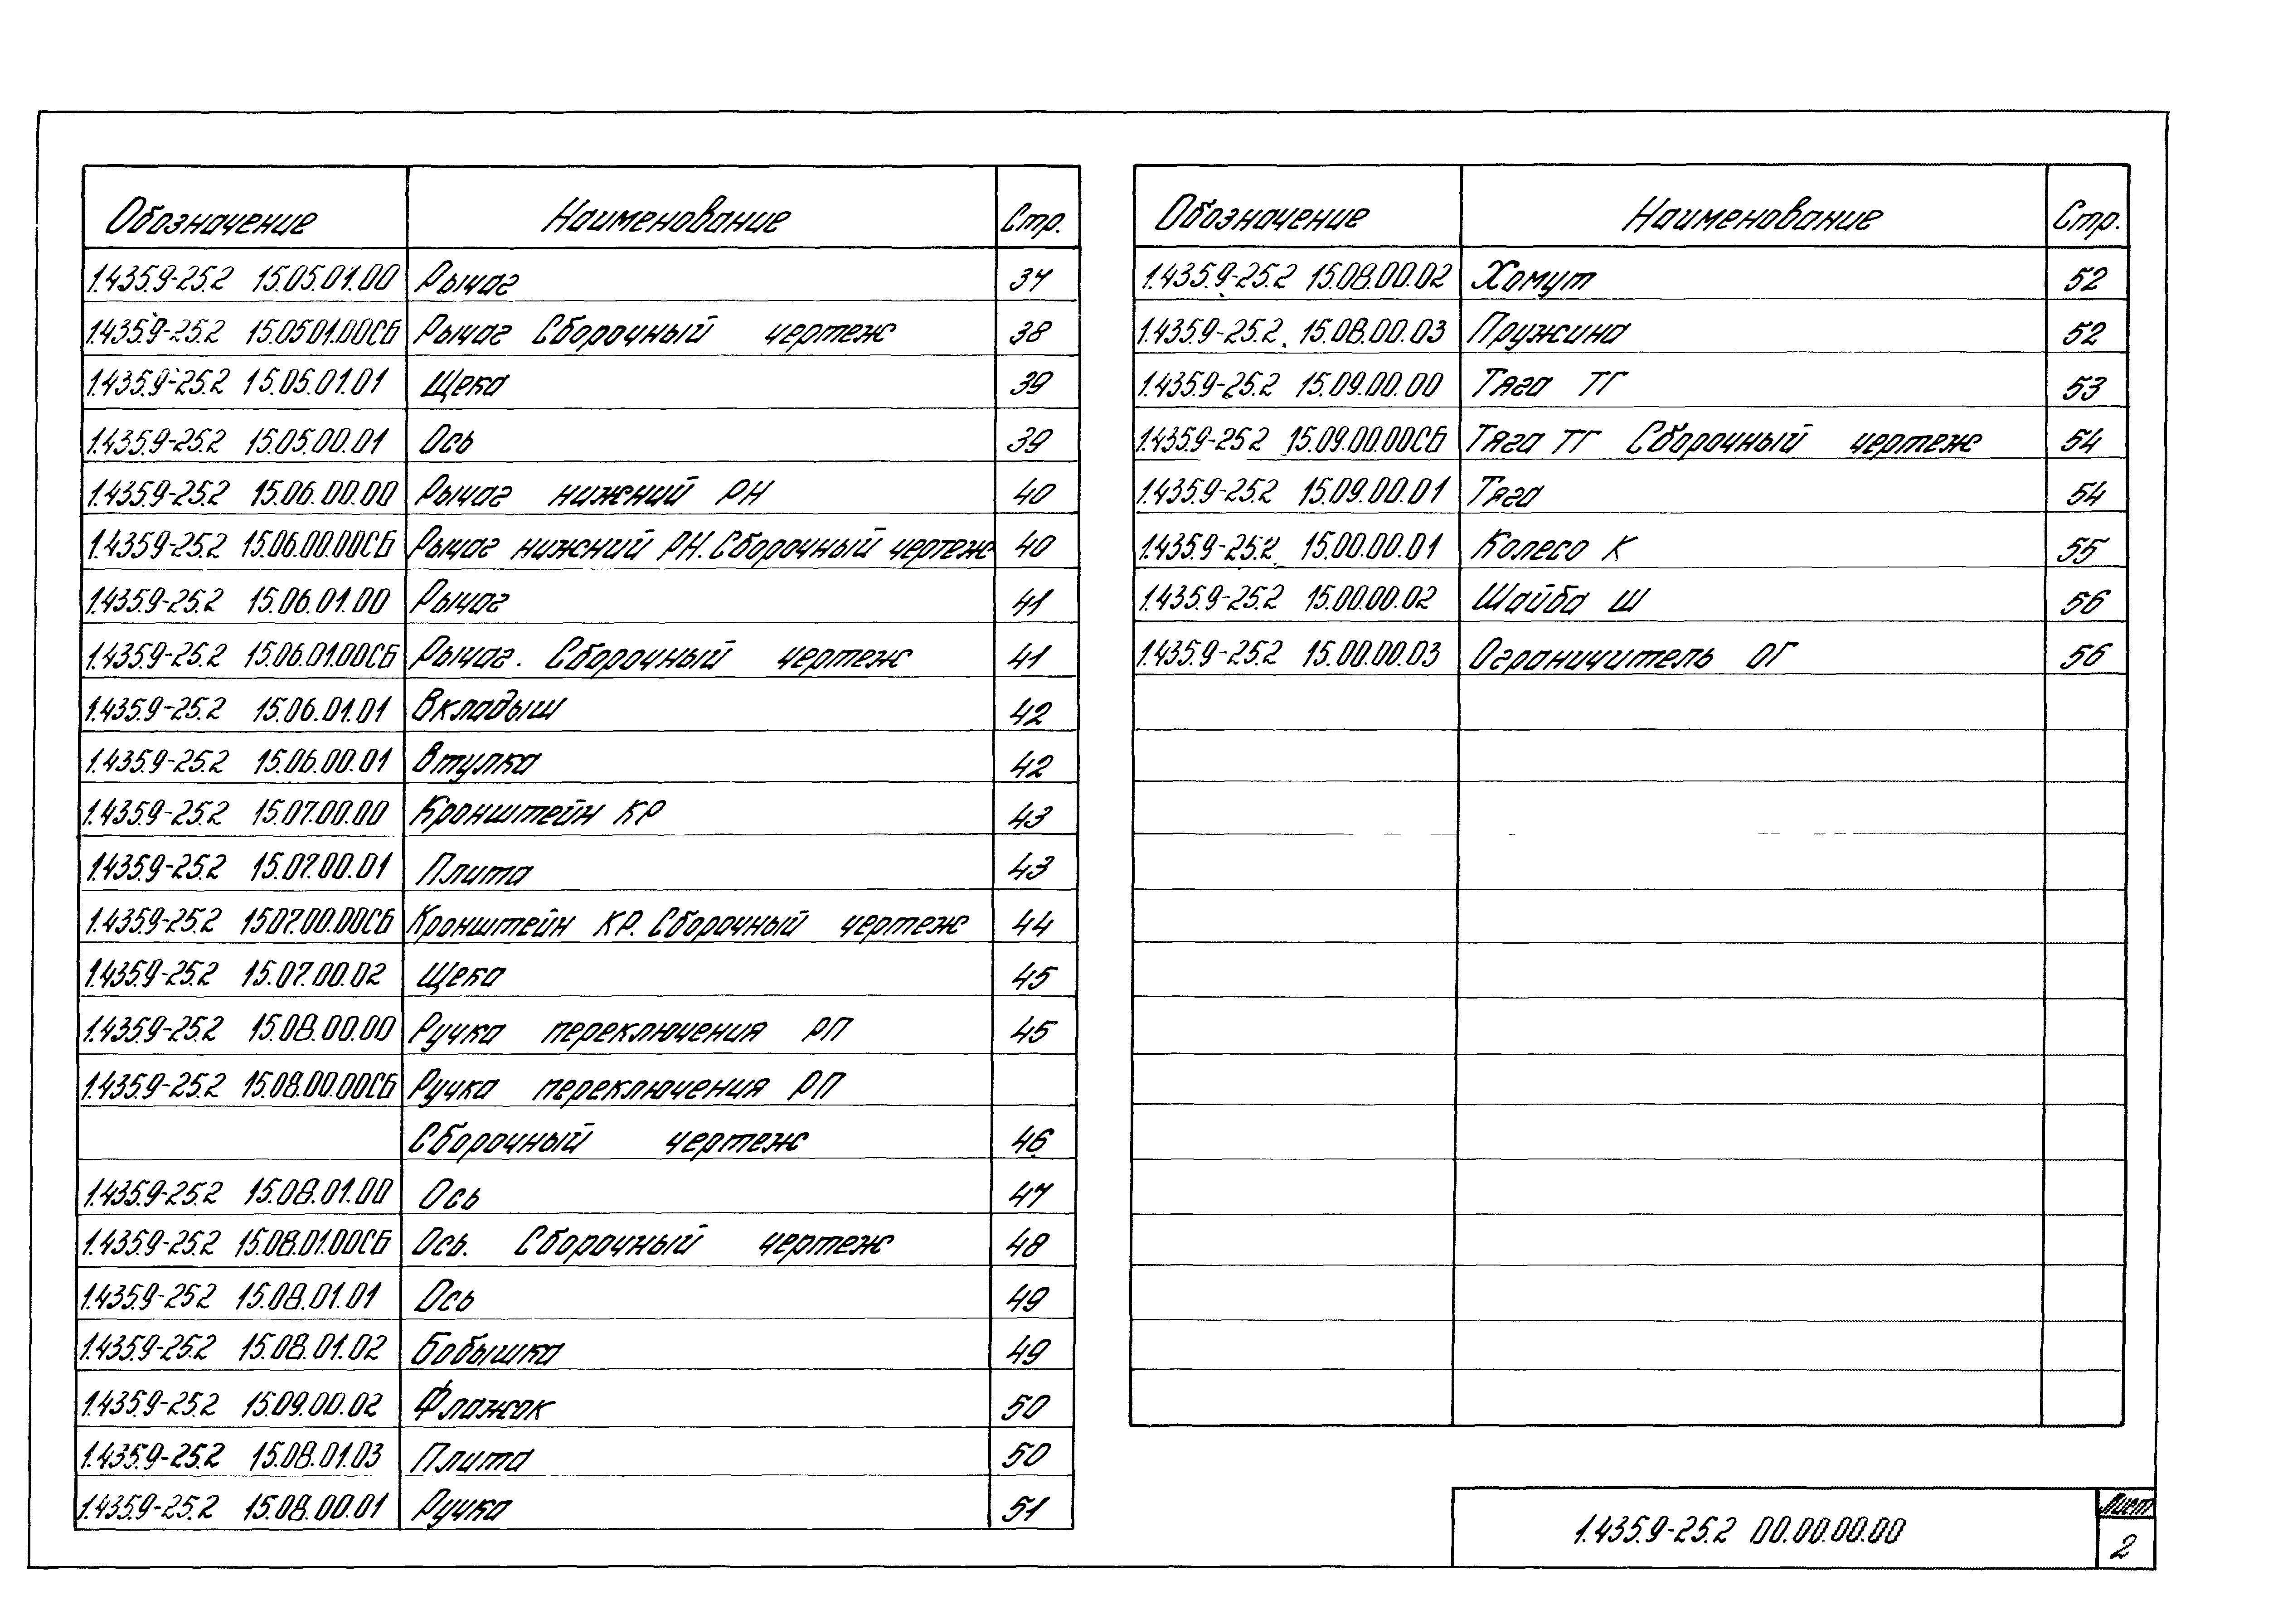 Обозначение Наименование Стр.
1.435.9-25.2 15.05.01.00 Рычаг 37
1.435.9-25.2 15.05.01.00СБ Рычаг Сборочный чертеж 38
1.435.9-25.2 15.05.01.01 Щека 39
1.435.9-25.2 15.05.00.01 Ось 39
1.435.9-25.2 15.06.00.00 Рычаг нижний РН 40
1.435.9-25.2 15.06.00.00СБ Рычаг нижний РН. Сборочный чертеж 40
1.435.9-25.2 15.06.01.00 Рычаг 41
1.435.9-25.2 15.06.01.00СБ Рычаг. Сборочный чертеж 41
1.435.9-25.2 15.06.01.01 Вкладыш 42
1.435.9-25.2 15.06.00.01 Втулка 42
1.435.9-25.2 15.07.00.00 Кронштейн КР 43
1.435.9-25.2 15.07.00.01 Плита 43
1.435.9-25.2 15.07.00.00СБ Кронштейн КР. Сборочный чертеж 44
1.435.9-25.2 15.07.00.02 Щека 45
1.435.9-25.2 15.08.00.00 Ручка переключения РП 45
1.435.9-25.2 15.08.00.00СБ Ручка переключения РП
Сборочный чертеж 46
1.435.9-25.2 15.08.01.00 Ось 47
1.435.9-25.2 15.08.01.00СБ Ось. Сборочный чертеж 48
1.435.9-25.2 15.08.01.01 Ось 49
1.435.9-25.2 15.08.01.02 Бобышка 49
1.435.9-25.2 15.09.00.02 Флажок 50
1.435.9-25.2 15.08.01.03 Плита 50
1.435.9-25.2 15.08.00.01 Ручка 51
Обозначение Наименование Стр.
1.435.9-25.2 15.08.00.02 Хомут 52
1.435.9-25.2 15.08.00.03 Пружина 52
1.435.9-25.2 15.09.00.00 Тяга ТГ 53
1.435.9-25.2 15.09.00.00СБ Тяга ТГ Сборочный чертеж 54
1.435.9-25.2 15.09.00.01 Тяга 54
1.435.9-25.2 15.00.00.01 Колесо К 55
1.435.9-25.2 15.00.00.02 Шайба Ш 56
1.435.9-25.2 15.00.00.03 Ограничитель ОГ 56
1.435.9-25.2 00.00.00.00
Лист
2